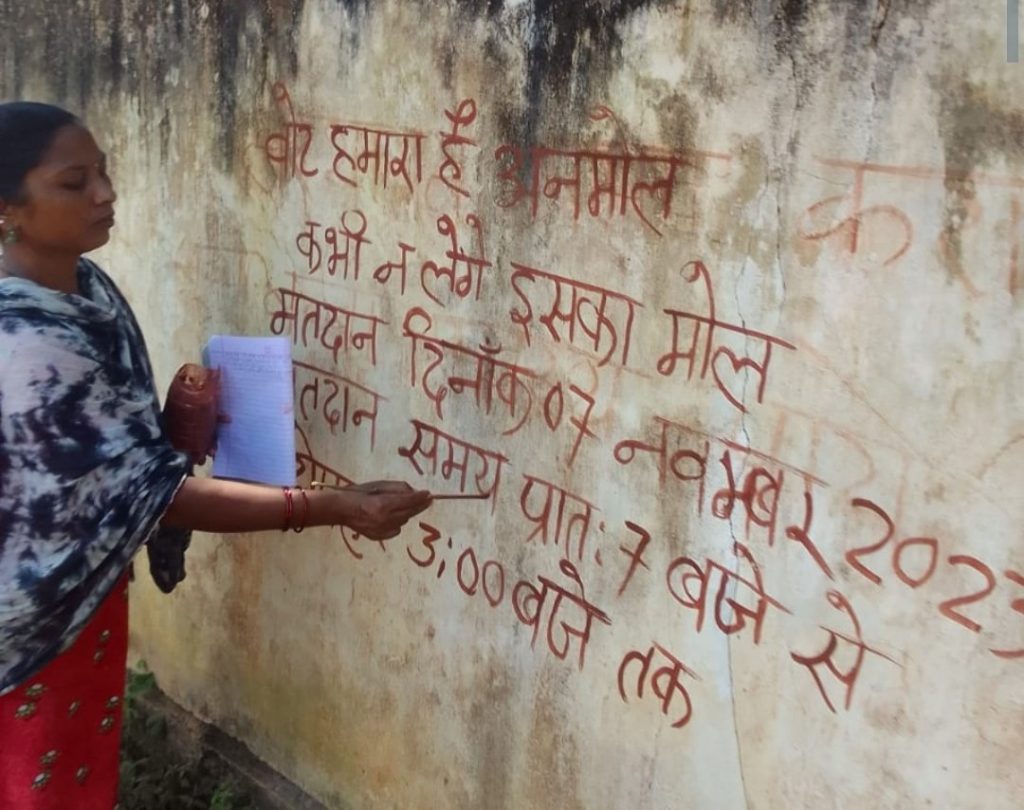 वोट हमारा है अनमोल
कभी न लेंगे इसका मोल
मतदान दिनाँक 07 नवम्बर 2023
मतदान समय प्रातः 7 बजे से
3:00 बजे तक